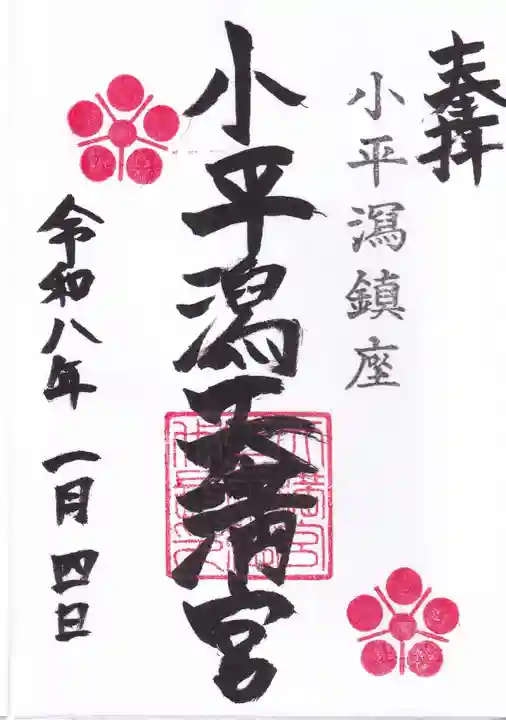 奉拝
小平潟鎮座
小平潟天満宮
令和八年 一月四日